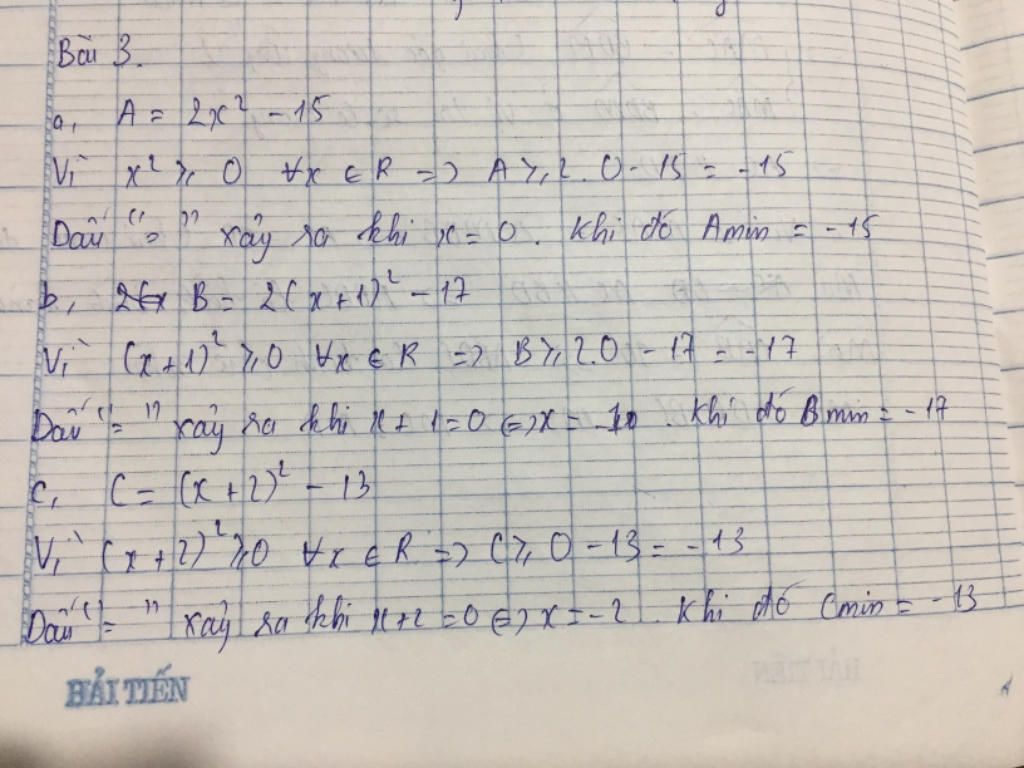 Bài 3.
a, A = 2x² - 15
Vì x² ≥ 0 ∀x ∈ R => A ≥ 2.0 - 15 = -15
Dấu "=" xảy ra khi x = 0. Khi đó Amin = -15
b, B = 2(x+1)² - 17
Vì (x+1)² ≥ 0 ∀x ∈ R => B ≥ 2.0 - 17 = -17
Dấu "=" xảy ra khi x + 1 = 0 <=> x = -1. Khi đó Bmin = -17
c, C = (x+2)² - 13
Vì (x+2)² ≥ 0 ∀x ∈ R => C ≥ 0 - 13 = -13
Dấu "=" xảy ra khi x+2 = 0 <=> x = -2. Khi đó Cmin = -13
HẢI TIẾN